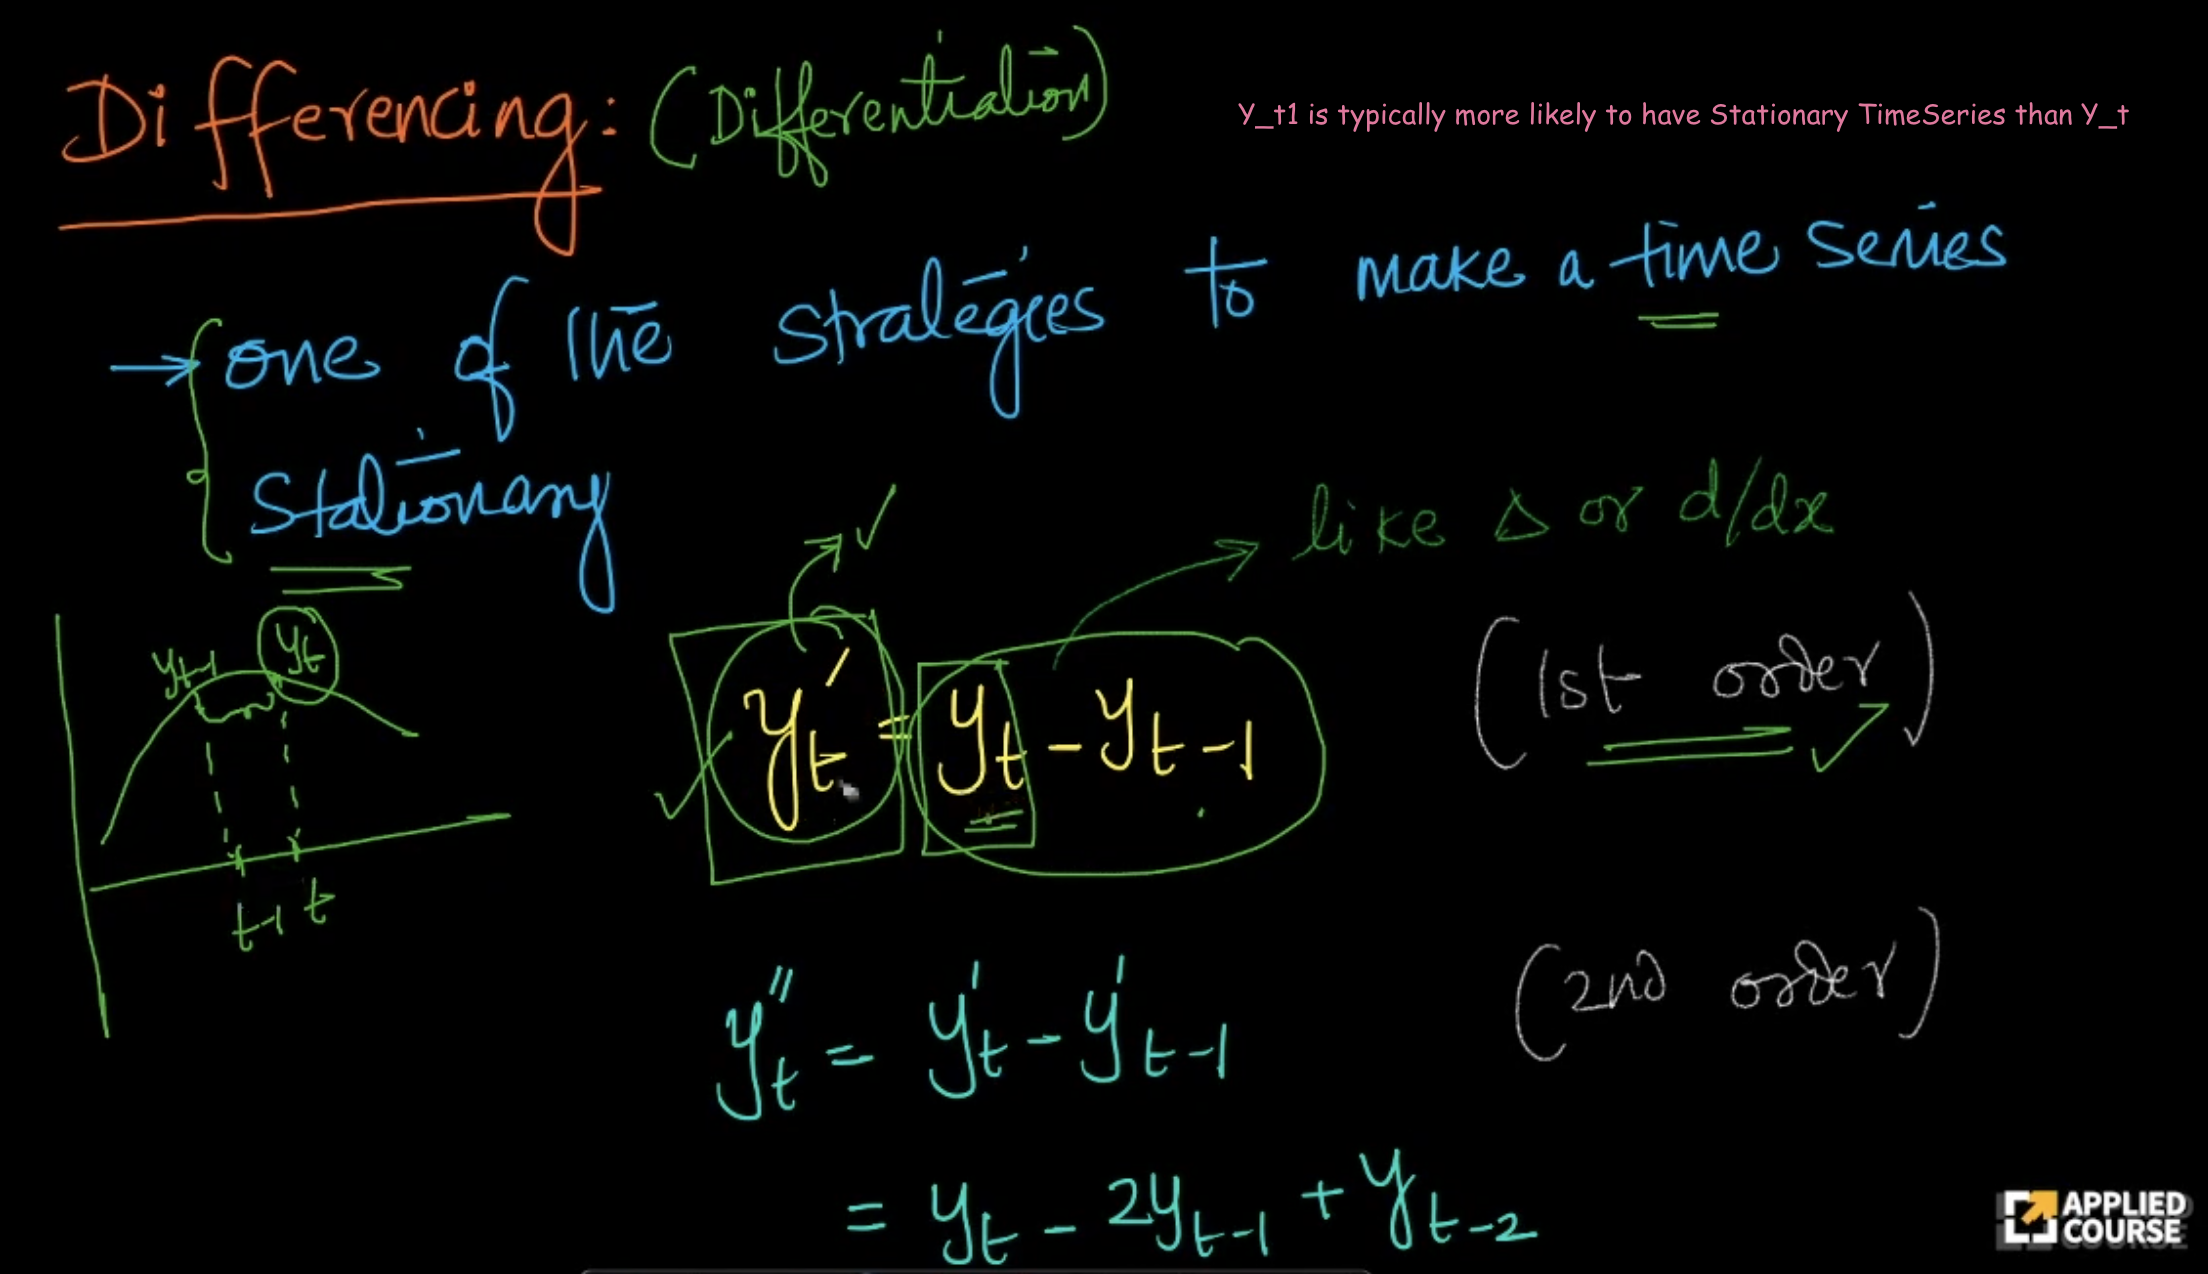 Differencing: (Differentiation)
Y_t1 is typically more likely to have Stationary TimeSeries than Y_t
→ one of the strategies to make a time series
stationary
like Δ or d/dx
y_{t-1} y_t
y'_t = y_t - y_{t-1} (1st order)
t-1 t
y''_t = y'_t - y'_{t-1} (2nd order)
= y_t - 2y_{t-1} + y_{t-2}
APPLIED
COURSE